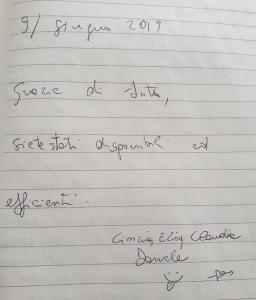 9/ giugno 2019
Grazie di tutto,
siete stati disponibili ed
efficienti.
Cinzia, Elia, Claudia
Daniele